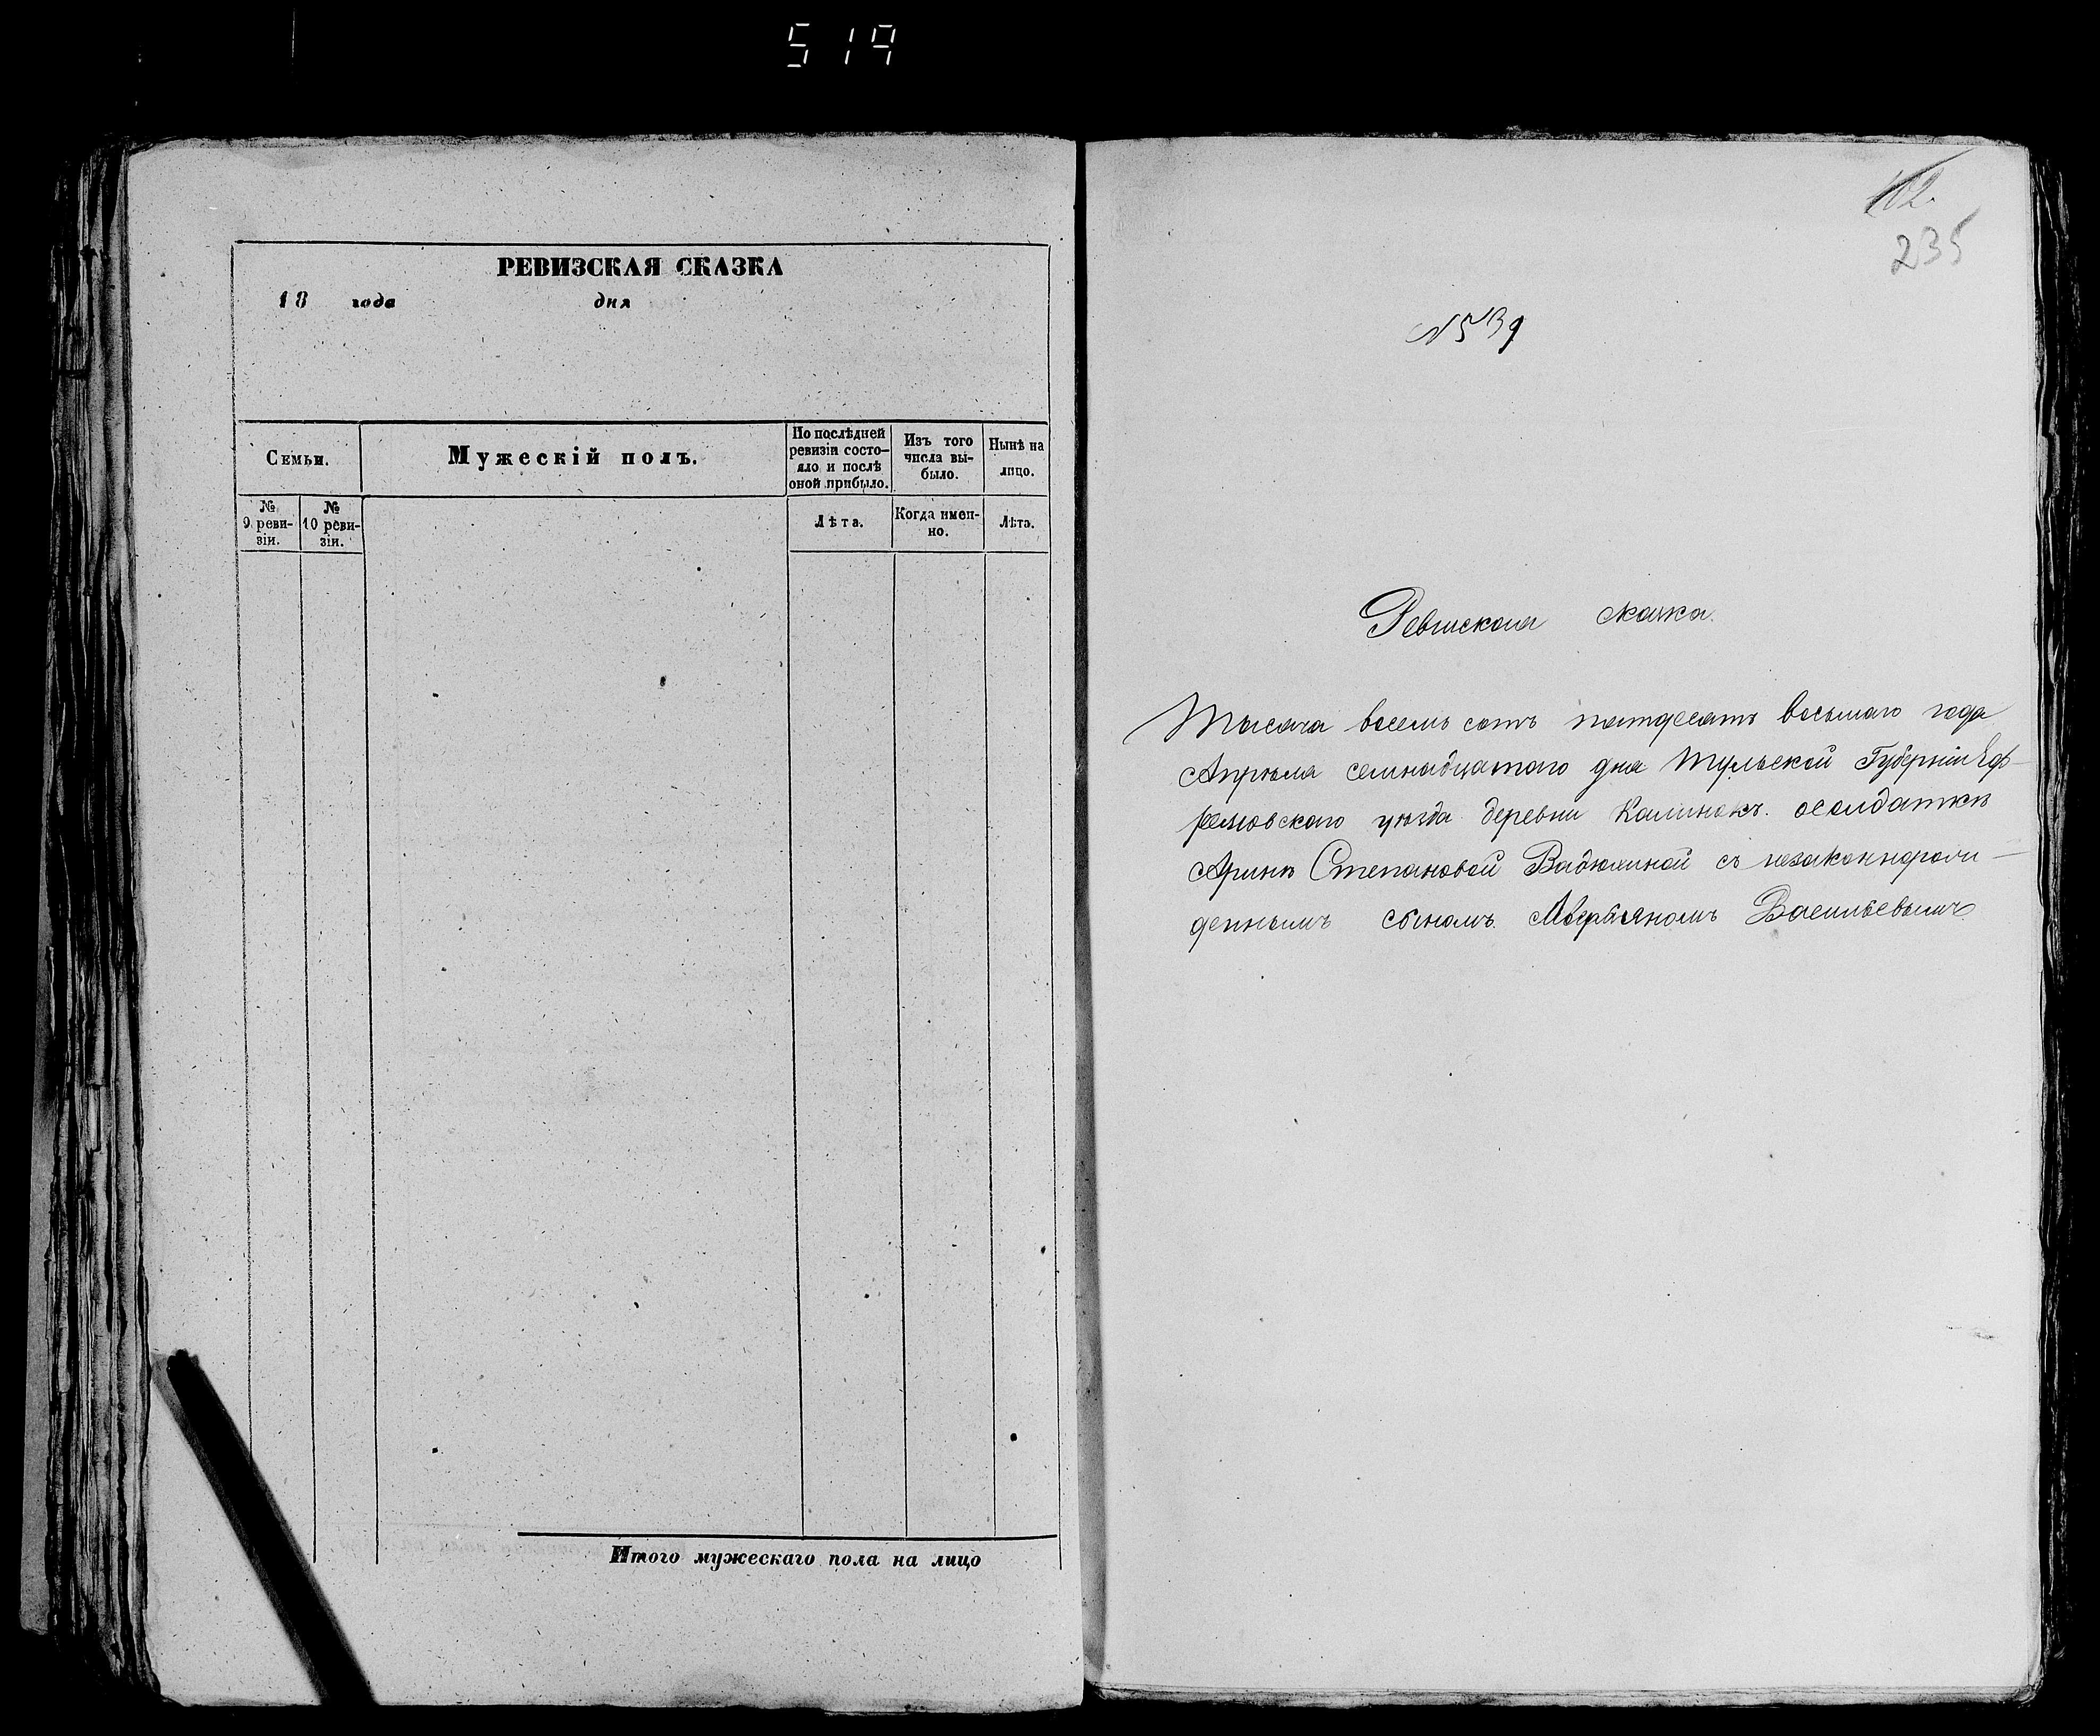 519
РЕВИЗСКАЯ СКАЗКА
18 года дня
Семьи.
Мужескій полъ.
По послѣдней
ревизіи состо-
яло и послѣ
оной прибыло.
Изъ того
числа вы-
было.
Нынѣ на
лицо.
№
9 реви-
зіи.
№
10 реви-
зіи.
Лѣта.
Когда имен-
но.
Лѣта.
Итого мужескаго пола на лицо
102.
235
№539
Ревизская сказка.
Тысяча восемь сотъ пятдесятъ восьмаго года
Апрѣля семнадцатаго дня Тульской Губерніи Еф-
ремовскаго уѣзда деревни Калинокъ. о солдаткѣ
Аринѣ Степановой Вадюхиной съ незаконнорож-
деннымъ сыномъ. Аверьяномъ Васильевымъ